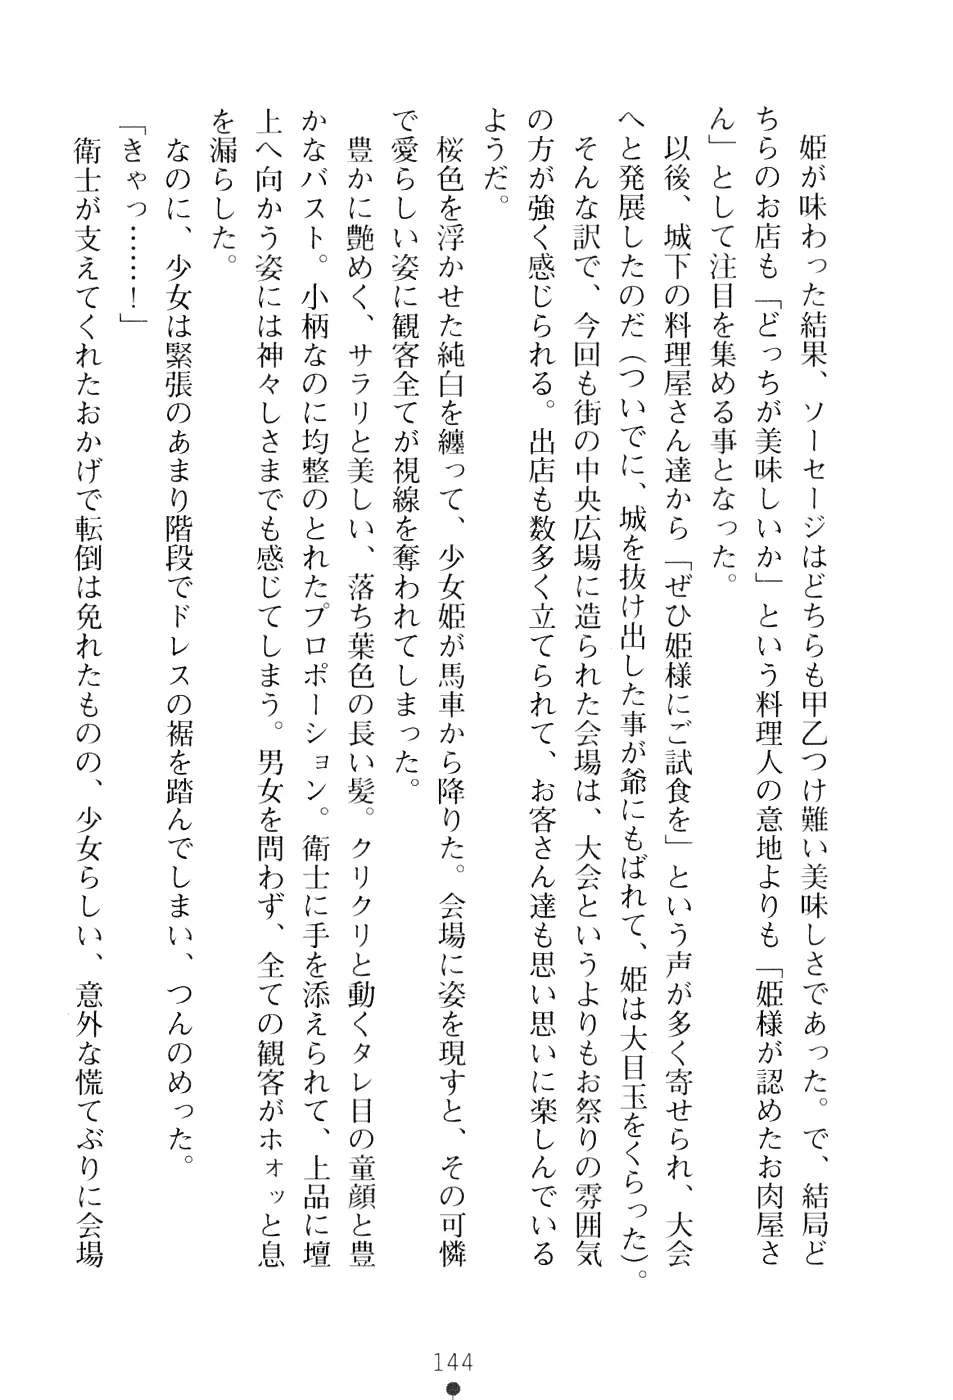 姫が味わった結果、ソーセージはどちらも甲乙つけ難い美味しさであった。で、結局ど
ちらのお店も「どっちが美味しいか」という料理人の意地よりも「姫様が認めたお肉屋さ
ん」として注目を集める事となった。
以後、城下の料理屋さん達から「ぜひ姫様にご試食を」という声が多く寄せられ、大会
へと発展したのだ（ついでに、城を抜け出した事が爺にもばれて、姫は大目玉をくらった）。
そんな訳で、今回も街の中央広場に造られた会場は、大会というよりもお祭りの雰囲気
の方が強く感じられる。出店も数多く立てられて、お客さん達も思い思いに楽しんでいる
ようだ。
桜色を浮かせた純白を纏って、少女姫が馬車から降りた。会場に姿を現すと、その可憐
で愛らしい姿に観客全てが視線を奪われてしまった。
豊かに艶めく、サラリと美しい、落ち葉色の長い髪。クリクリと動くタレ目の童顔と豊
かなバスト。小柄なのに均整のとれたプロポーション。衛士に手を添えられて、上品に壇
上へ向かう姿には神々しさまでも感じてしまう。男女を問わず、全ての観客がホォッと息
を漏らした。
なのに、少女は緊張のあまり階段でドレスの裾を踏んでしまい、つんのめった。
「きゃっ……！」
衛士が支えてくれたおかげで転倒は免れたものの、少女らしい、意外な慌てぶりに会場
144